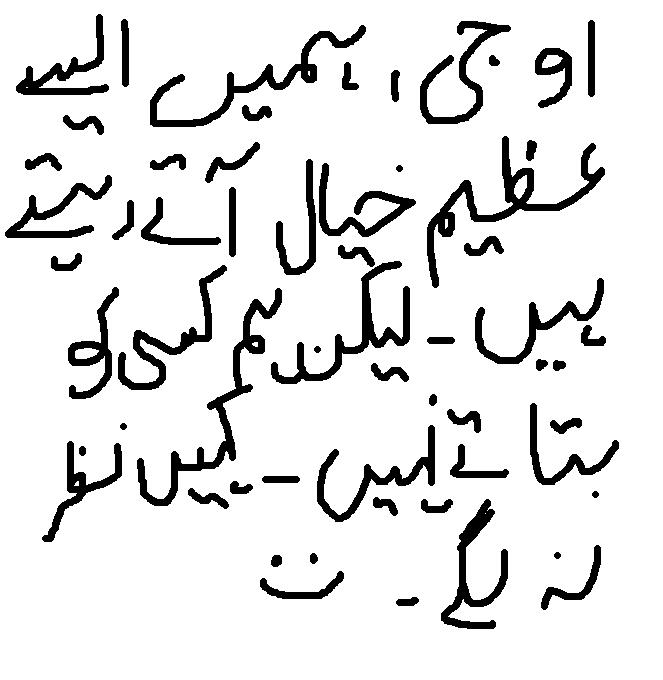 او جی، ہمیں ایسے
عظیم خیال آتے رہتے
ہیں ۔ لیکن ہم کسی کو
بتاتے نہیں ۔ کہیں نظر
نہ لگے ۔